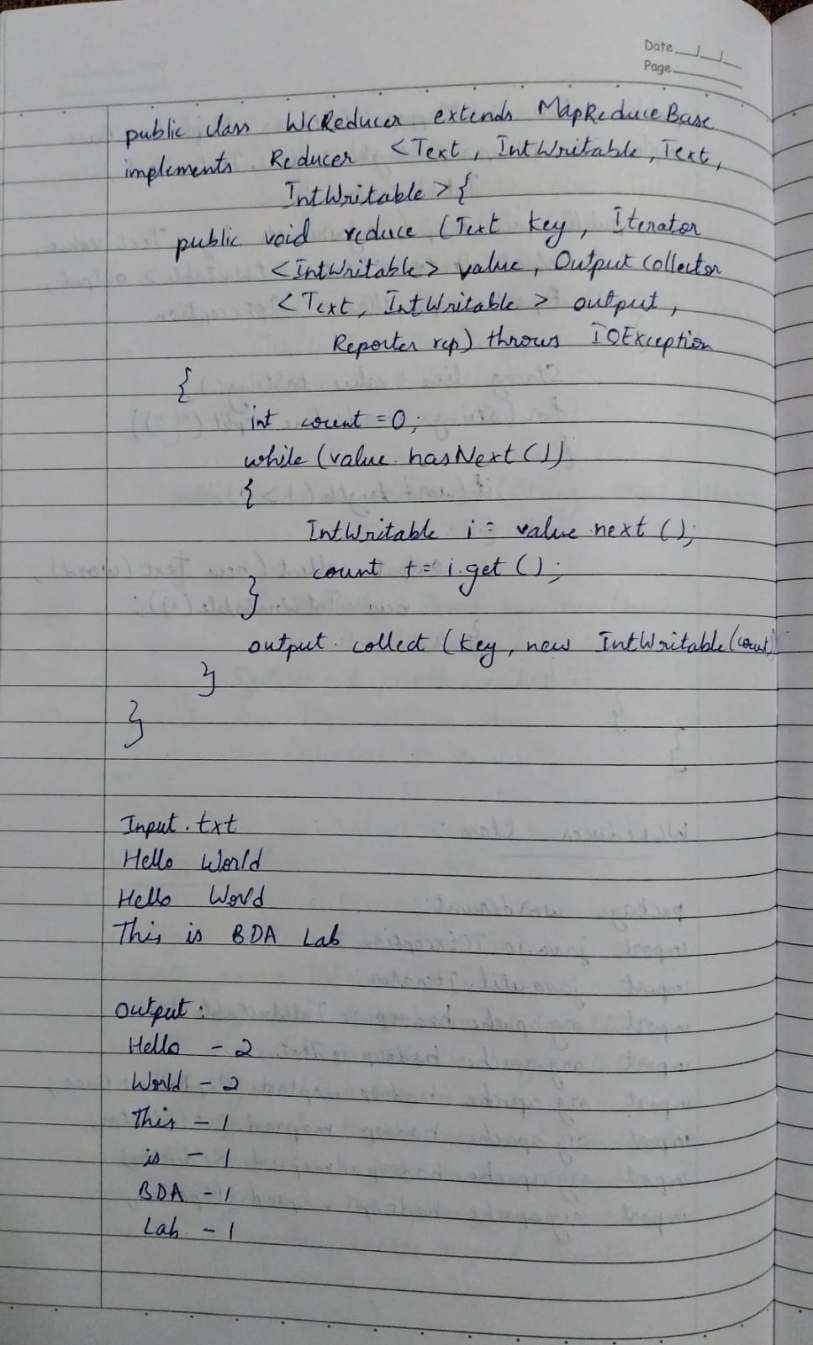 Date __/__/__
Page
public class WCReducer extends MapReduceBase
implements Reducer <Text, IntWritable, Text,
IntWritable > {
public void reduce (Text key, Iterator
<IntWritable> value, Output Collector
<Text, IntWritable > output,
Reporter rep) throws IOException
{
int count = 0;
while (value. hasNext ())
{
IntWritable i = value. next ();
count += i.get ();
}
output. collect (key, new IntWritable (count)
}
}
Input. txt
Hello World
Hello World
This is BDA Lab
output:
Hello - 2
World - 2
This - 1
is - 1
BDA - 1
Lab - 1